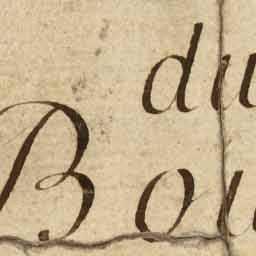 du
Bou